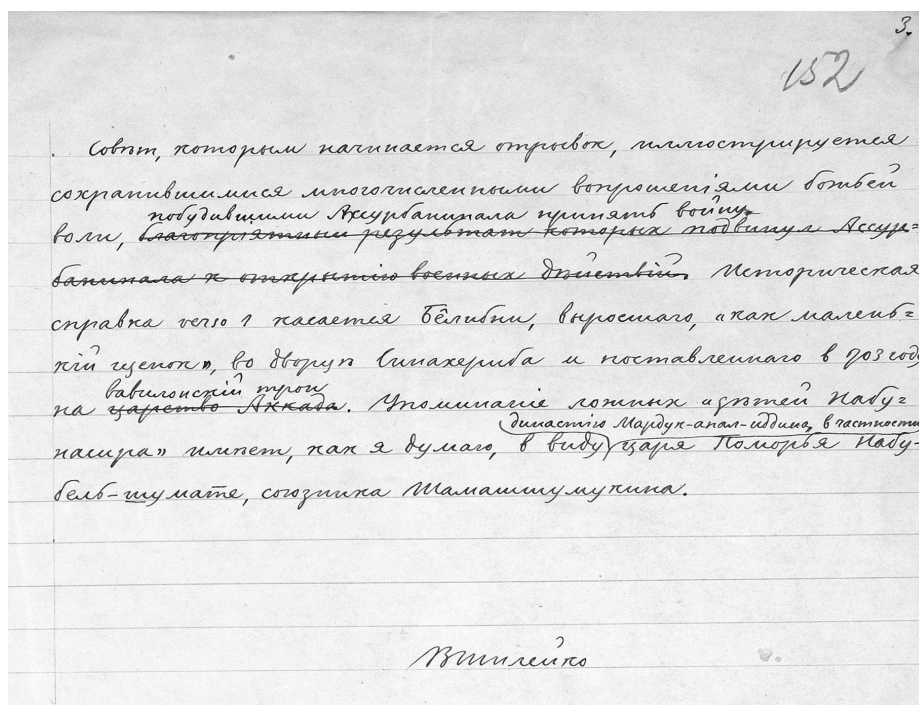 3.
152
Совѣт, которым начинается отрывок, иллюстрируется
сохранившимися многочисленными вопрошеніями божьей
побудившими Ассурбанипала принять войну.
воли, благопріятный результат которых подвинул Ассур=
банипала к открытію военных дѣйствій. Историческая
справка verso 1 касается Бêлибни, выросшаго, «как малень=
кій щенок», во дворцѣ Синахериба и поставленнаго в 703 году
вавилонскій трон
на царство Аккада. Упоминаніе ложных «дѣтей Набу=
династію Мардук-апал-иддина, в частности
насира» имѣет, как я думаю, в виду царя Поморья Набу-
бель-шумате, союзника Шамашшумукина.
ВШилейко